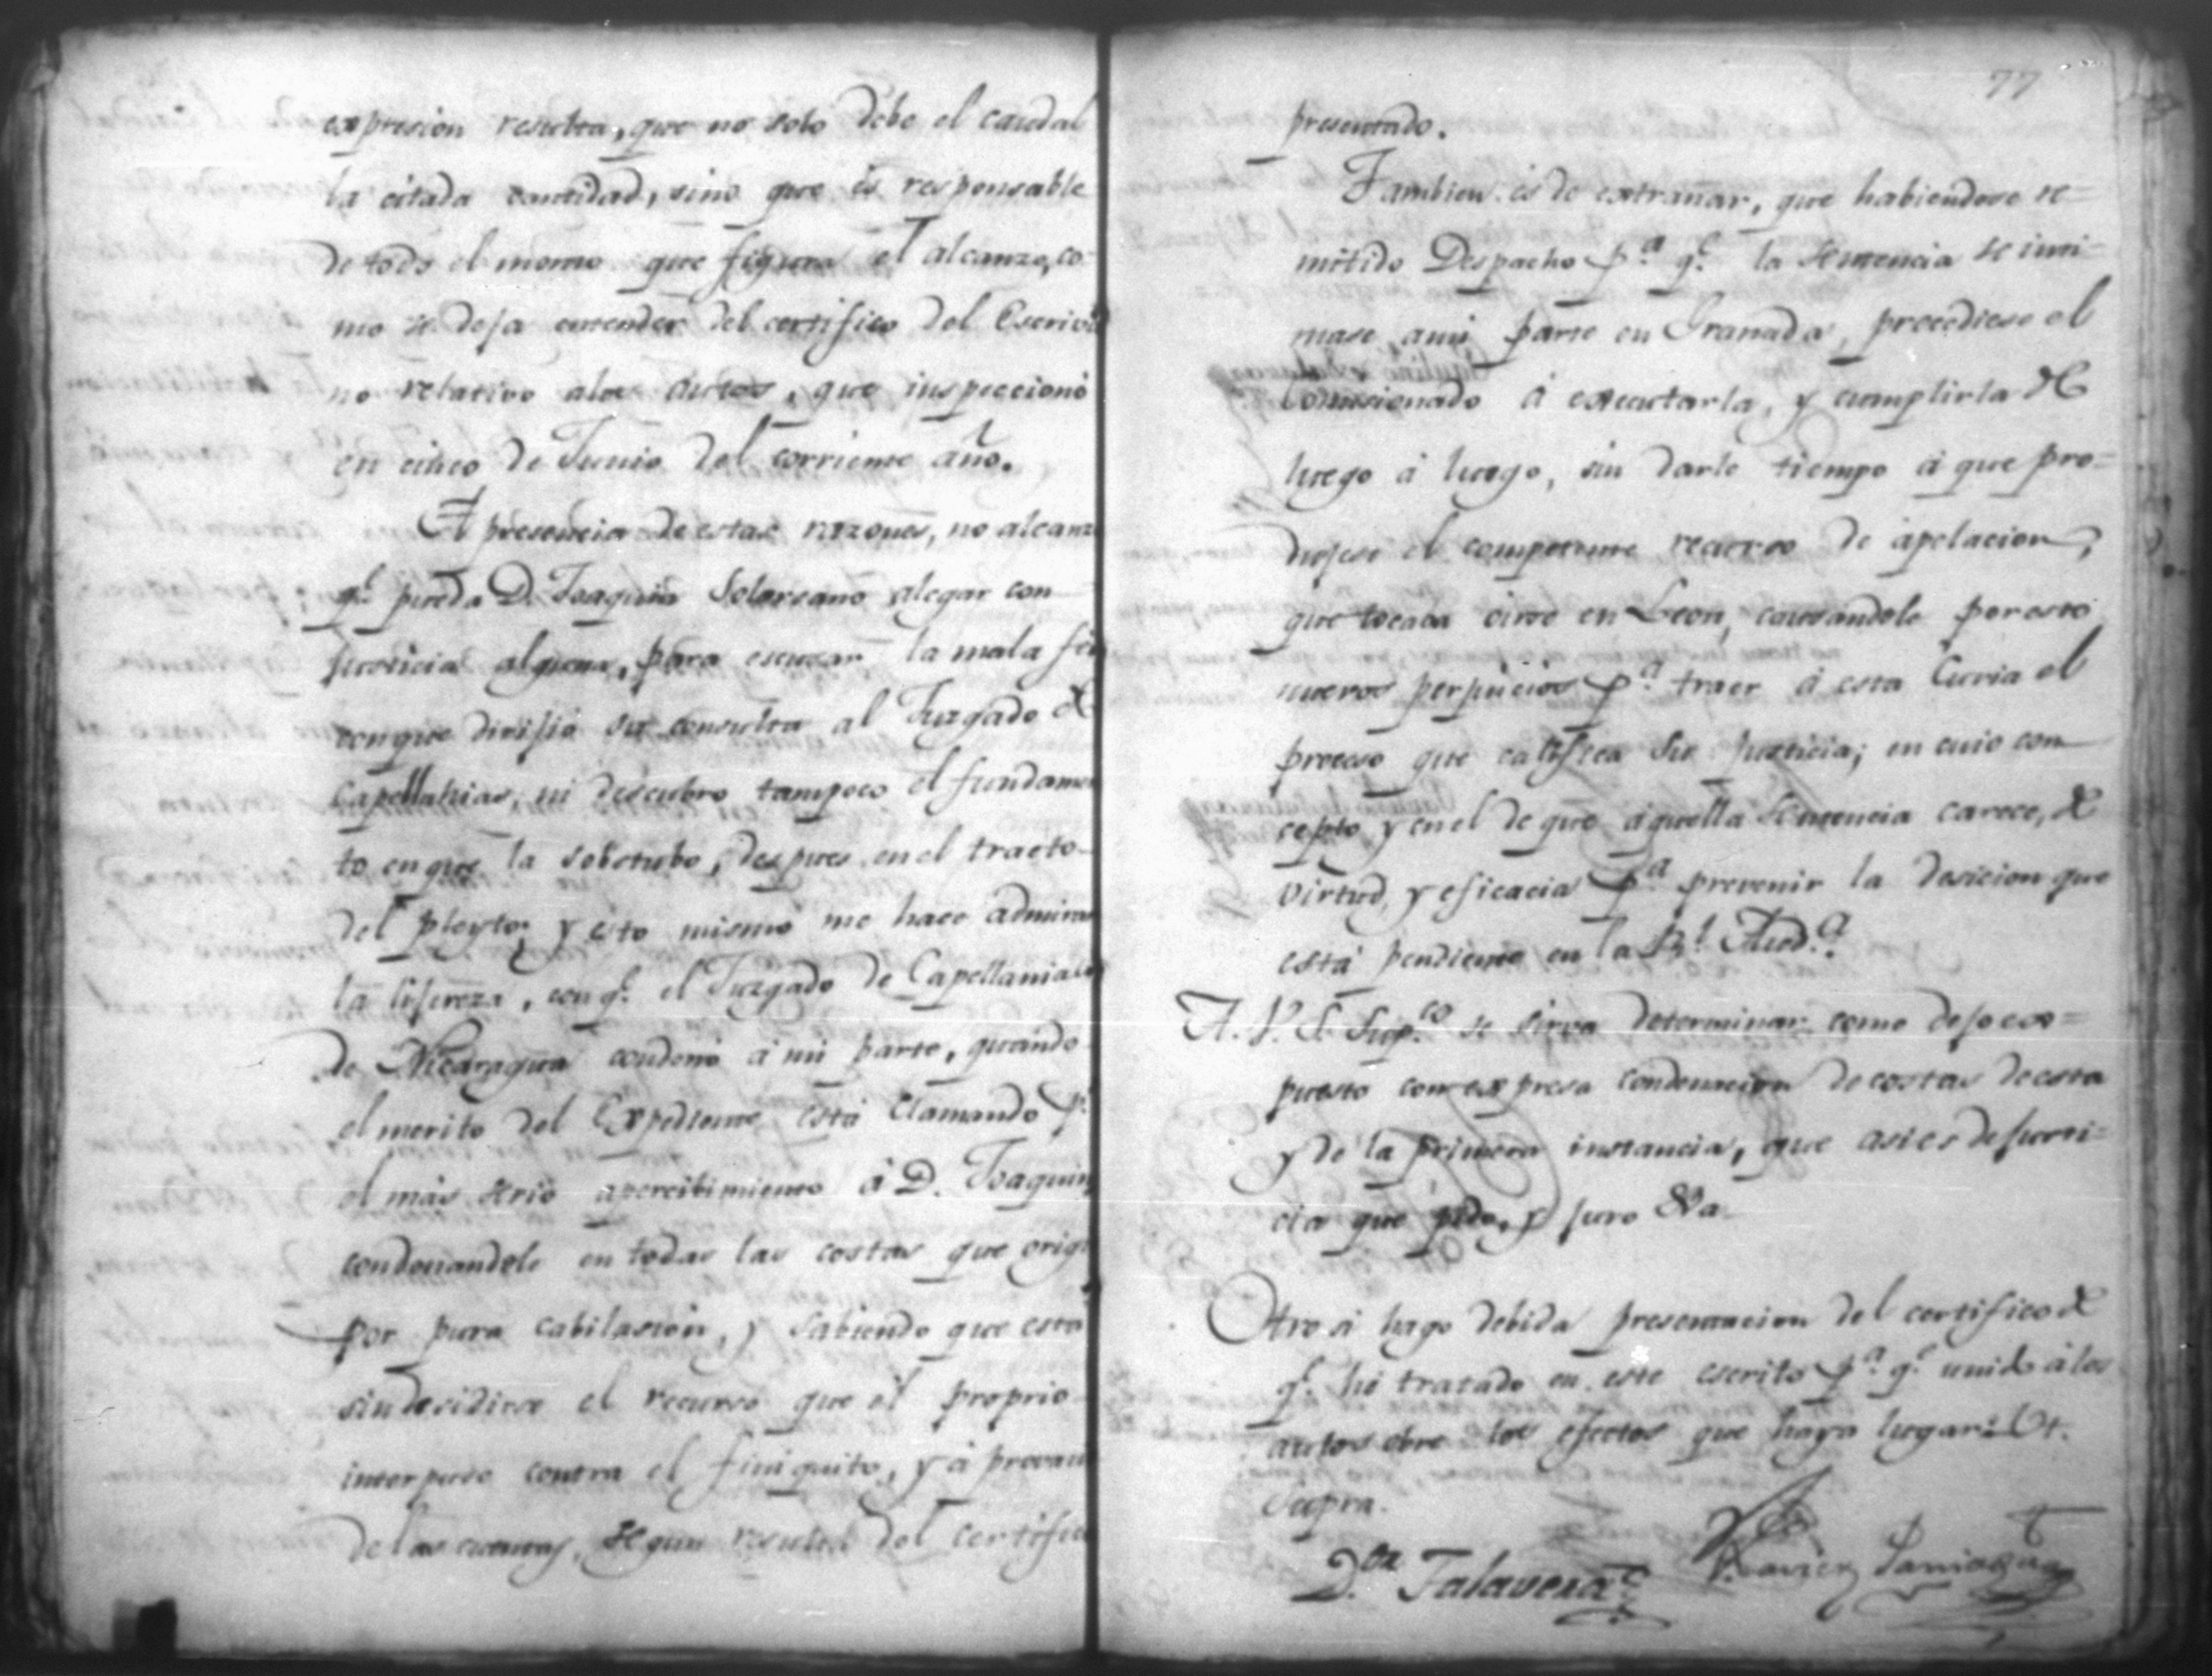 expresion resulta, que no solo debe el caudal
la citada cantidad, sino que és responsable
de todo el monto que figura el alcanze, co-
mo se deja entender del certifico del Escriva
no relativo alos autos, que inspeccionó
en cinco de Junio del corriente año.
A presencia de estas razones, no alcanz
q.e pueda D. Joaquin Solorzano alegar con
justicia alguna, para escusar la mala fee
conque dirijió su consulta al Juzgado de
Capellanias, ni descubro tampoco el fundamen
to enque la sobstubo, despues en el tracto
del pleyto; y ésto mismo me hace admirar
la lijereza, con q.e el Juzgado de Capellanias
de Nicaragua condenó á mi parte, quando
el merito del Expediente está clamando p.r
el más sério apercibimiento á D. Joaquin
condenandole en todas las costas que origi
por pura cabilasion, y sabiendo que está
sin desidirse el recurso que él proprio
interpuso contra el finiquito, y á provaci
de las cuentas, segun resulta del certifico
77
presentado.
Tambien és de extrañar, que habiendose re-
mitido Despacho p.a q.e la Sentencia se inti-
mase ami parte en Granada, procediese el
Comisionado á executarla, y cumplirla de
luego á luego, sin darle tiempo á que pro-
dujese el competente recurso de apelacion,
que tocaba oirse en Leon, causandole por esto
nuevos perjuicios p.a traer á esta Curia el
proceso que califica su justicia; en cuio con
cepto y en el de que aquella Sentencia carece, de
virtud, y eficacia p.a prevenir la desicion que
está pendiente en la R.l Aud.a
A. V. S. Sup.co se sirva determinar como dejo ex-
puesto con expresa condenacion de costas de esta
y de la primera instancia, que asi es de justi-
cia que pido, y juro &a
Otro si hago debida presentacion del certifico de
q.e hé tratado en este escrito p.a q.e unido á los
autos obre los efectos que haya lugar: Ut.
Supra.
D.or Talavera
Xavier Paniagua